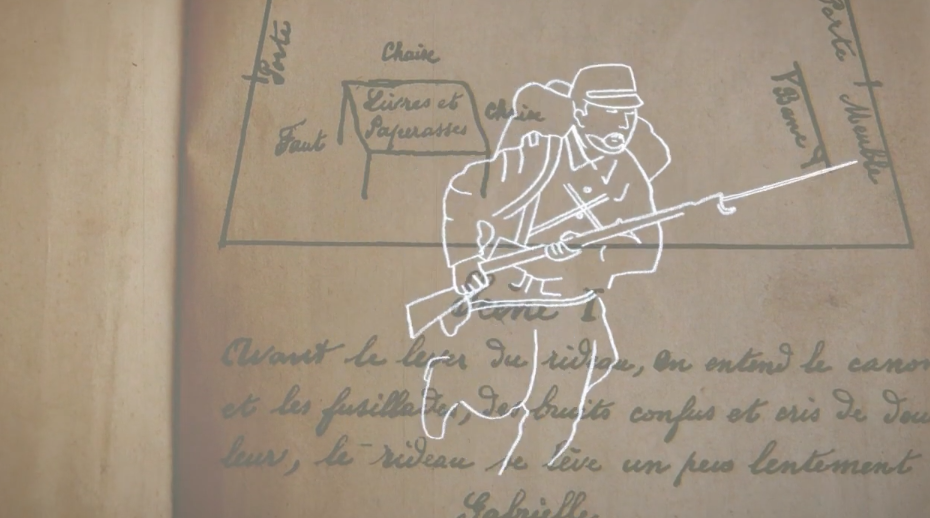 Porte
Porte
Chaise
Livres et
Paperasses
Chaise
Banc
Meuble
Faut
Scène I
Avant le lever du rideau, on entend le canon
et les fusillades, des bruits confus et cris de dou
leur, le rideau se lève un peu lentement
Gabrielle